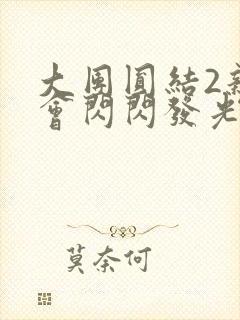 大團圓結2
會閃閃發光
莫奈何